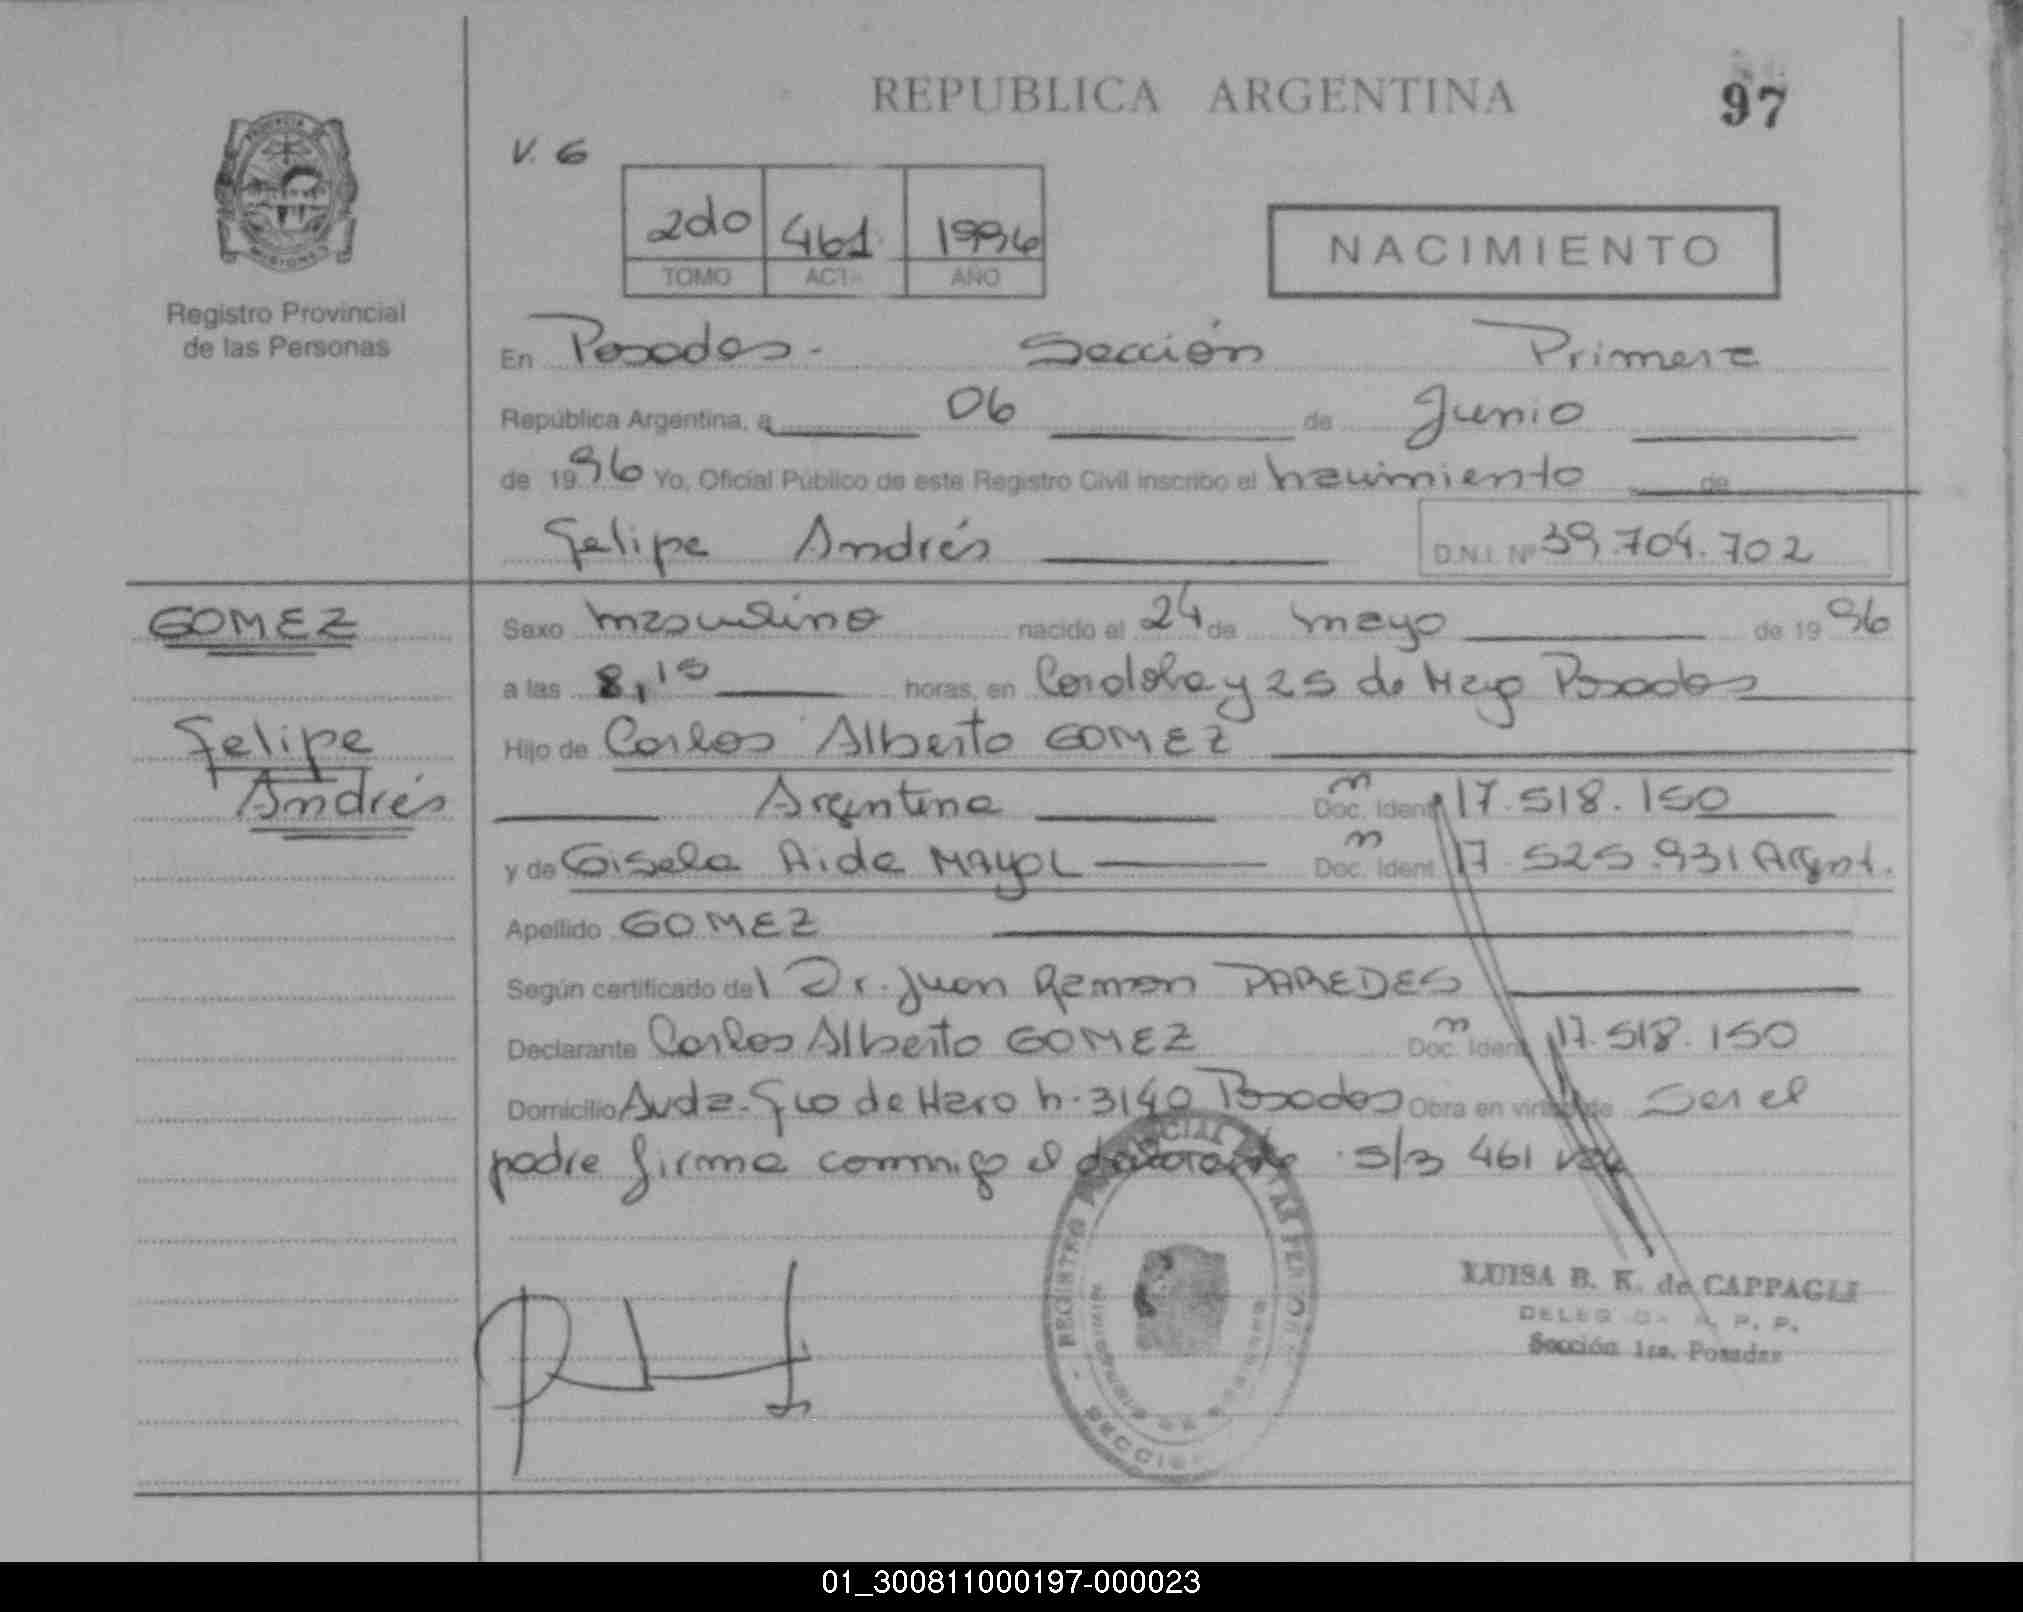 REPUBLICA ARGENTINA
97
V. 6
2do 461 1996
TOMO ACTA AÑO
NACIMIENTO
PROVINCIA DE
MISIONES
Registro Provincial
de las Personas
En Posadas.- Sección Primera
República Argentina, a 06 de Junio
de 1996 Yo, Oficial Público de este Registro Civil inscribo el nacimiento de
Felipe Andrés D.N.I. Nº 39.704.702
GOMEZ
Felipe
Andrés
Sexo masculino nacido el 24 de mayo de 1996
a las 8,15 horas, en Cordoba y 25 de Mayo Posadas
Hijo de Carlos Alberto GOMEZ
Argentina Doc. Ident m 17.518.150
y de Gisela Aide MAYOL Doc. Ident m 17 525.931 Argent.
Apellido GOMEZ
Según certificado del Dr. Juan Ramon PAREDES
Declarante Carlos Alberto GOMEZ Doc. Ident m 17.518.150
Domicilio Avda. Fco de Haro n. 3140 Posadas Obra en virtud de Ser el
padre firma conmigo el declarante s/3 461
REGISTRO PROVINCIAL DE LAS PERSONAS
SECCION
LUISA B. K. de CAPPAGLI
Sección 1ra. Posadas
01_300811000197-000023